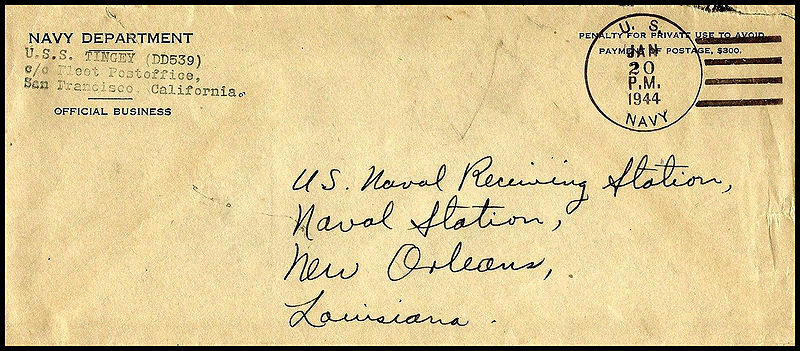 NAVY DEPARTMENT
U.S.S. TINGEY (DD539)
c/o Fleet Postoffice,
San Francisco, California.
OFFICIAL BUSINESS
PENALTY FOR PRIVATE USE TO AVOID
PAYMENT OF POSTAGE, $300.
U. S.
JAN
20
P.M.
1944
NAVY
U.S. Naval Receiving Station,
Naval Station,
New Orleans,
Louisiana.